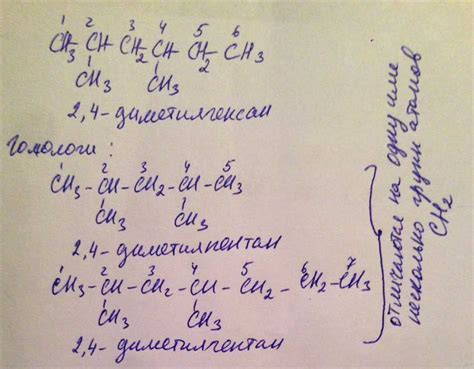 1 2 3 4 5 6
CH3 CH CH2 CH CH2 CH3
CH3 CH3
2,4-диметилгексан
Гомологи:
1 2 3 4 5
CH3-CH-CH2-CH-CH3
CH3 CH3
2,4-диметилпентан
1 2 3 4 5 6 7
CH3-CH-CH2-CH-CH2-CH2-CH3
CH3 CH3
2,4-диметилгептан
отличаются на одну или
несколько групп атомов
CH2